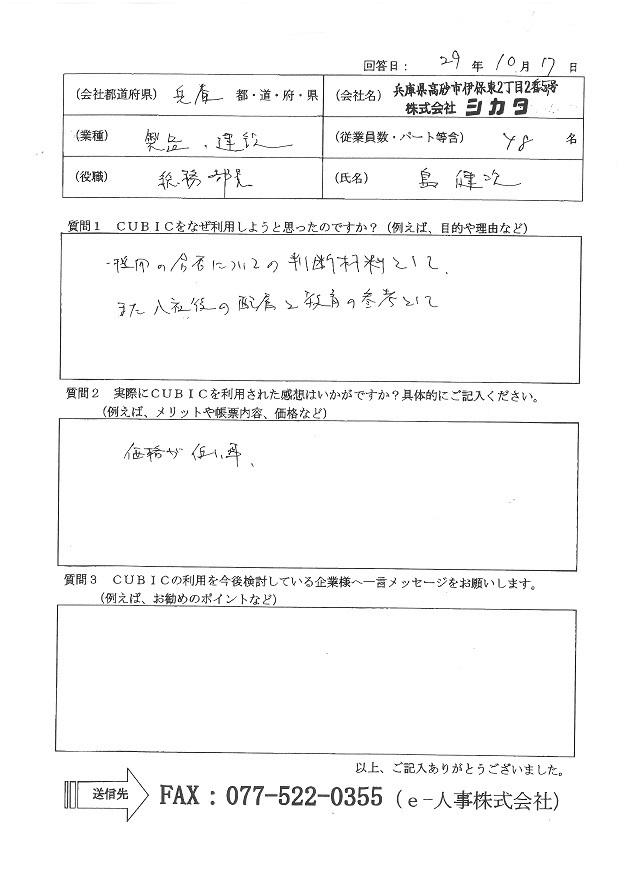 回答日： 29 年 10 月 17 日
（会社都道府県） 兵庫 都・道・府・県
（会社名） 兵庫県高砂市伊保東2丁目2番5号
株式会社 シカタ
（業種） 製缶、建設
（従業員数・パート等含） 48 名
（役職） 総務部長
（氏名） 島 健次
質問１　ＣＵＢＩＣをなぜ利用しようと思ったのですか？（例えば、目的や理由など）
採用の合否についての判断材料として、
また入社後の配属と教育の参考として
質問２　実際にＣＵＢＩＣを利用された感想はいかがですか？具体的にご記入ください。
（例えば、メリットや帳票内容、価格など）
価格が低い事、
質問３　ＣＵＢＩＣの利用を今後検討している企業様へ一言メッセージをお願いします。
（例えば、お勧めのポイントなど）
以上、ご記入ありがとうございました。
送信先 FAX：077-522-0355（ｅ-人事株式会社）